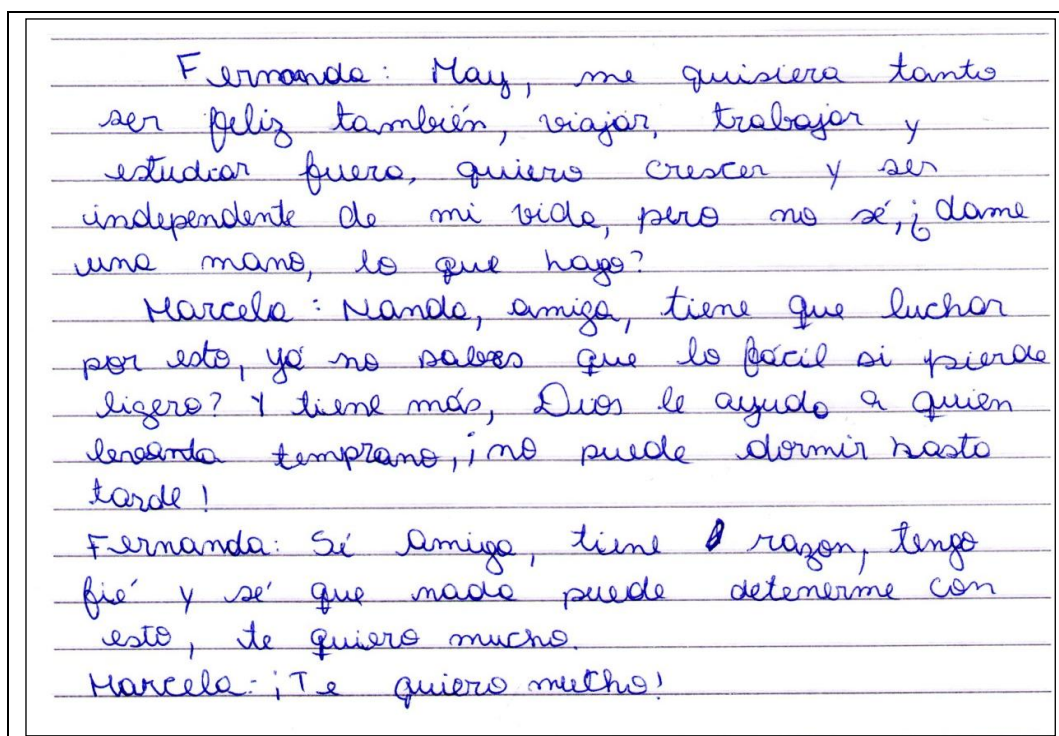 Fernanda: May, me quisiera tanto
ser feliz también, viajar, trabajar y
estudiar fuera, quiero crescer y ser
independente de mi vida, pero no sé, ¿dame
una mano, lo que hago?
Marcela: Nanda, amiga, tiene que luchar
por esto, yá no sabes que lo fácil si pierde
ligero? Y tiene más, Dios le ayuda a quien
levanta temprano, ¡no puede dormir hasta
tarde!
Fernanda: Sí amiga, tiene razon, tengo
fié y sé que nada puede detenerme con
esto, te quiero mucho.
Marcela: ¡Te quiero mutcho!